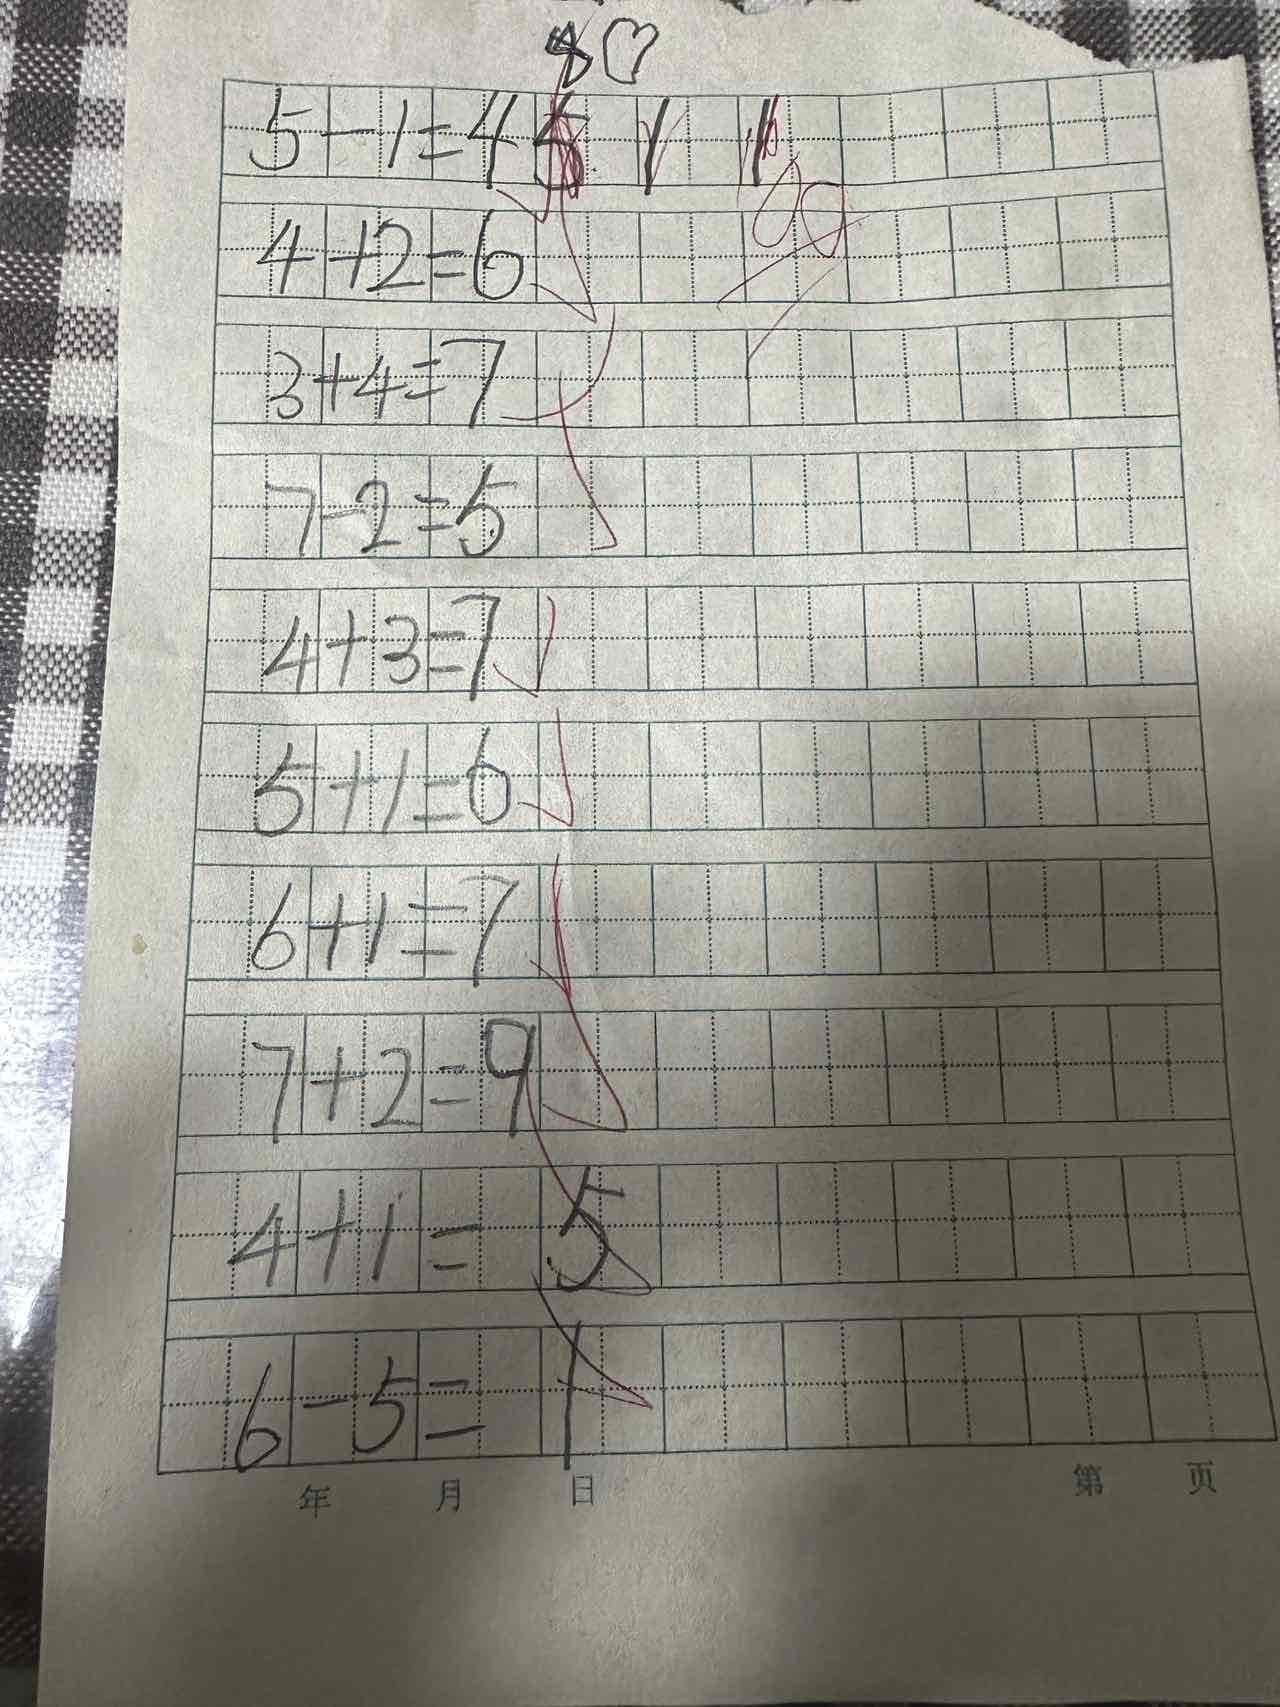 5-1=4 5 1 1
4+2=6
3+4=7
7-2=5
4+3=7
5+1=6
6+1=7
7+2=9
4+1= 5
6-5= 1
年 月 日 第 页